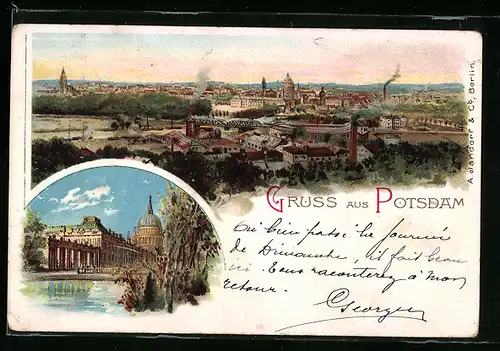 GRUSS AUS POTSDAM
A. Jandorf & Co, Berlin.
Ai bien passé la journée
de Dimanche, il fait beau
ici. Vous raconterez à mon
retour.
Georges